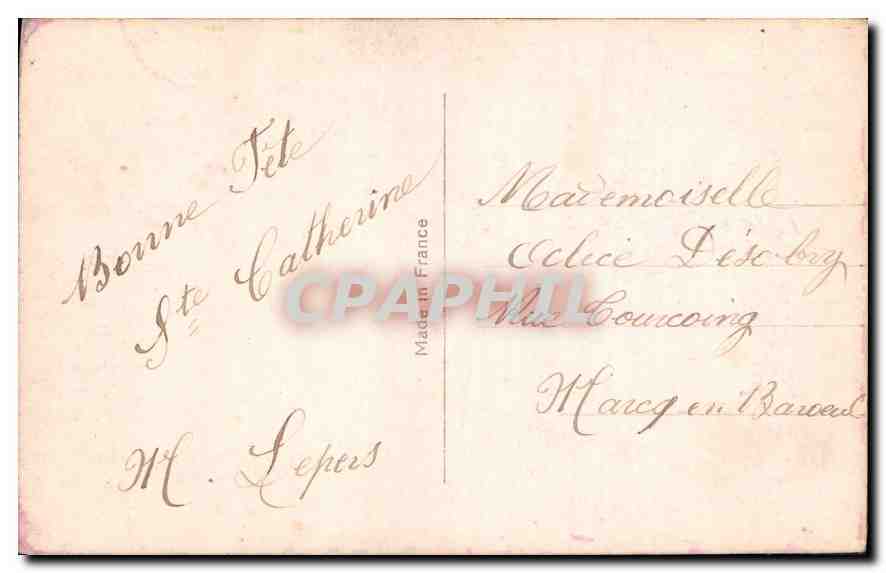 Bonne Fête
Ste Catherine
M. Lepers
Made in France
CPAPHIL
Mademoiselle
Désobry
Rue Tourcoing
Marcq en Baroeul